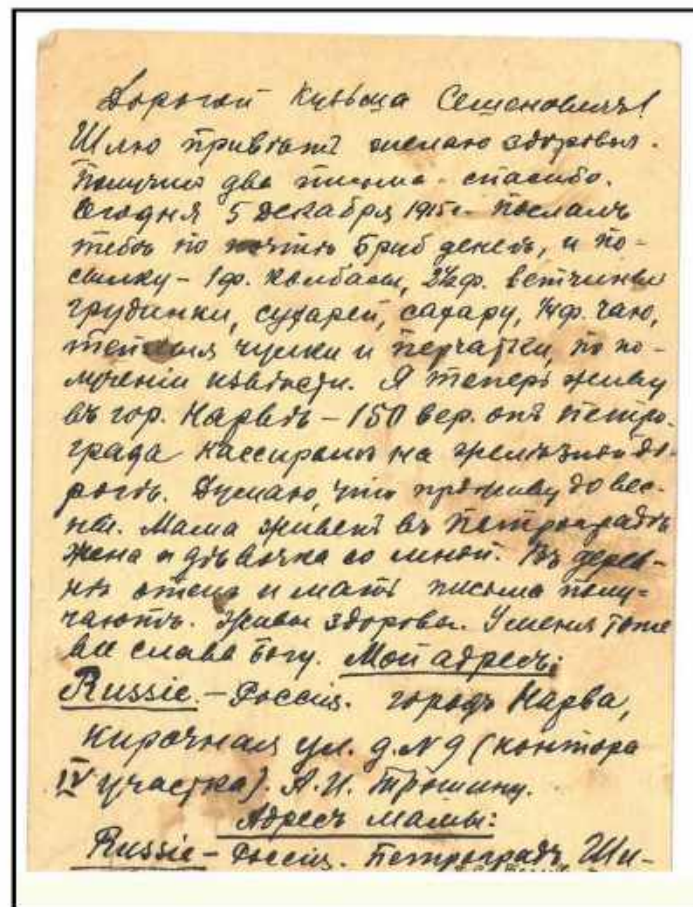 Дорогой Кузьма Семеновичъ!
Шлю приветъ желаю здоровья.
Получил два письма - спасибо.
Сегодня 5 декабря 1915г. послалъ
тебѣ по почтѣ 5 руб денегъ, и по-
сылку - 1ф. колбасы, 2½ф. ветчины
грудинки, сухарей, сахару, ¼ф. чаю,
теплыя чулки и перчатки, по по-
лученіи извѣсти. Я теперь живу
въ гор. Нарвѣ - 150 вер. отъ Петро-
града кассиромъ на желѣзной до-
рогѣ. Думаю, что проживу до вес-
ны. Мама живетъ въ Петроградѣ
жена и дѣвочка со мной. Въ дерев-
нѣ отецъ и мать письма полу-
чаютъ. Живы здоровы. У меня тоже
все слава богу. Мой адресъ:
Russie. - Россія. городъ Нарва,
Кирочная ул. д. № 9 (контора
IV участка). А.И. Трошину.
Адресъ мамы:
Russie - Россія. Петроградъ, Ши-